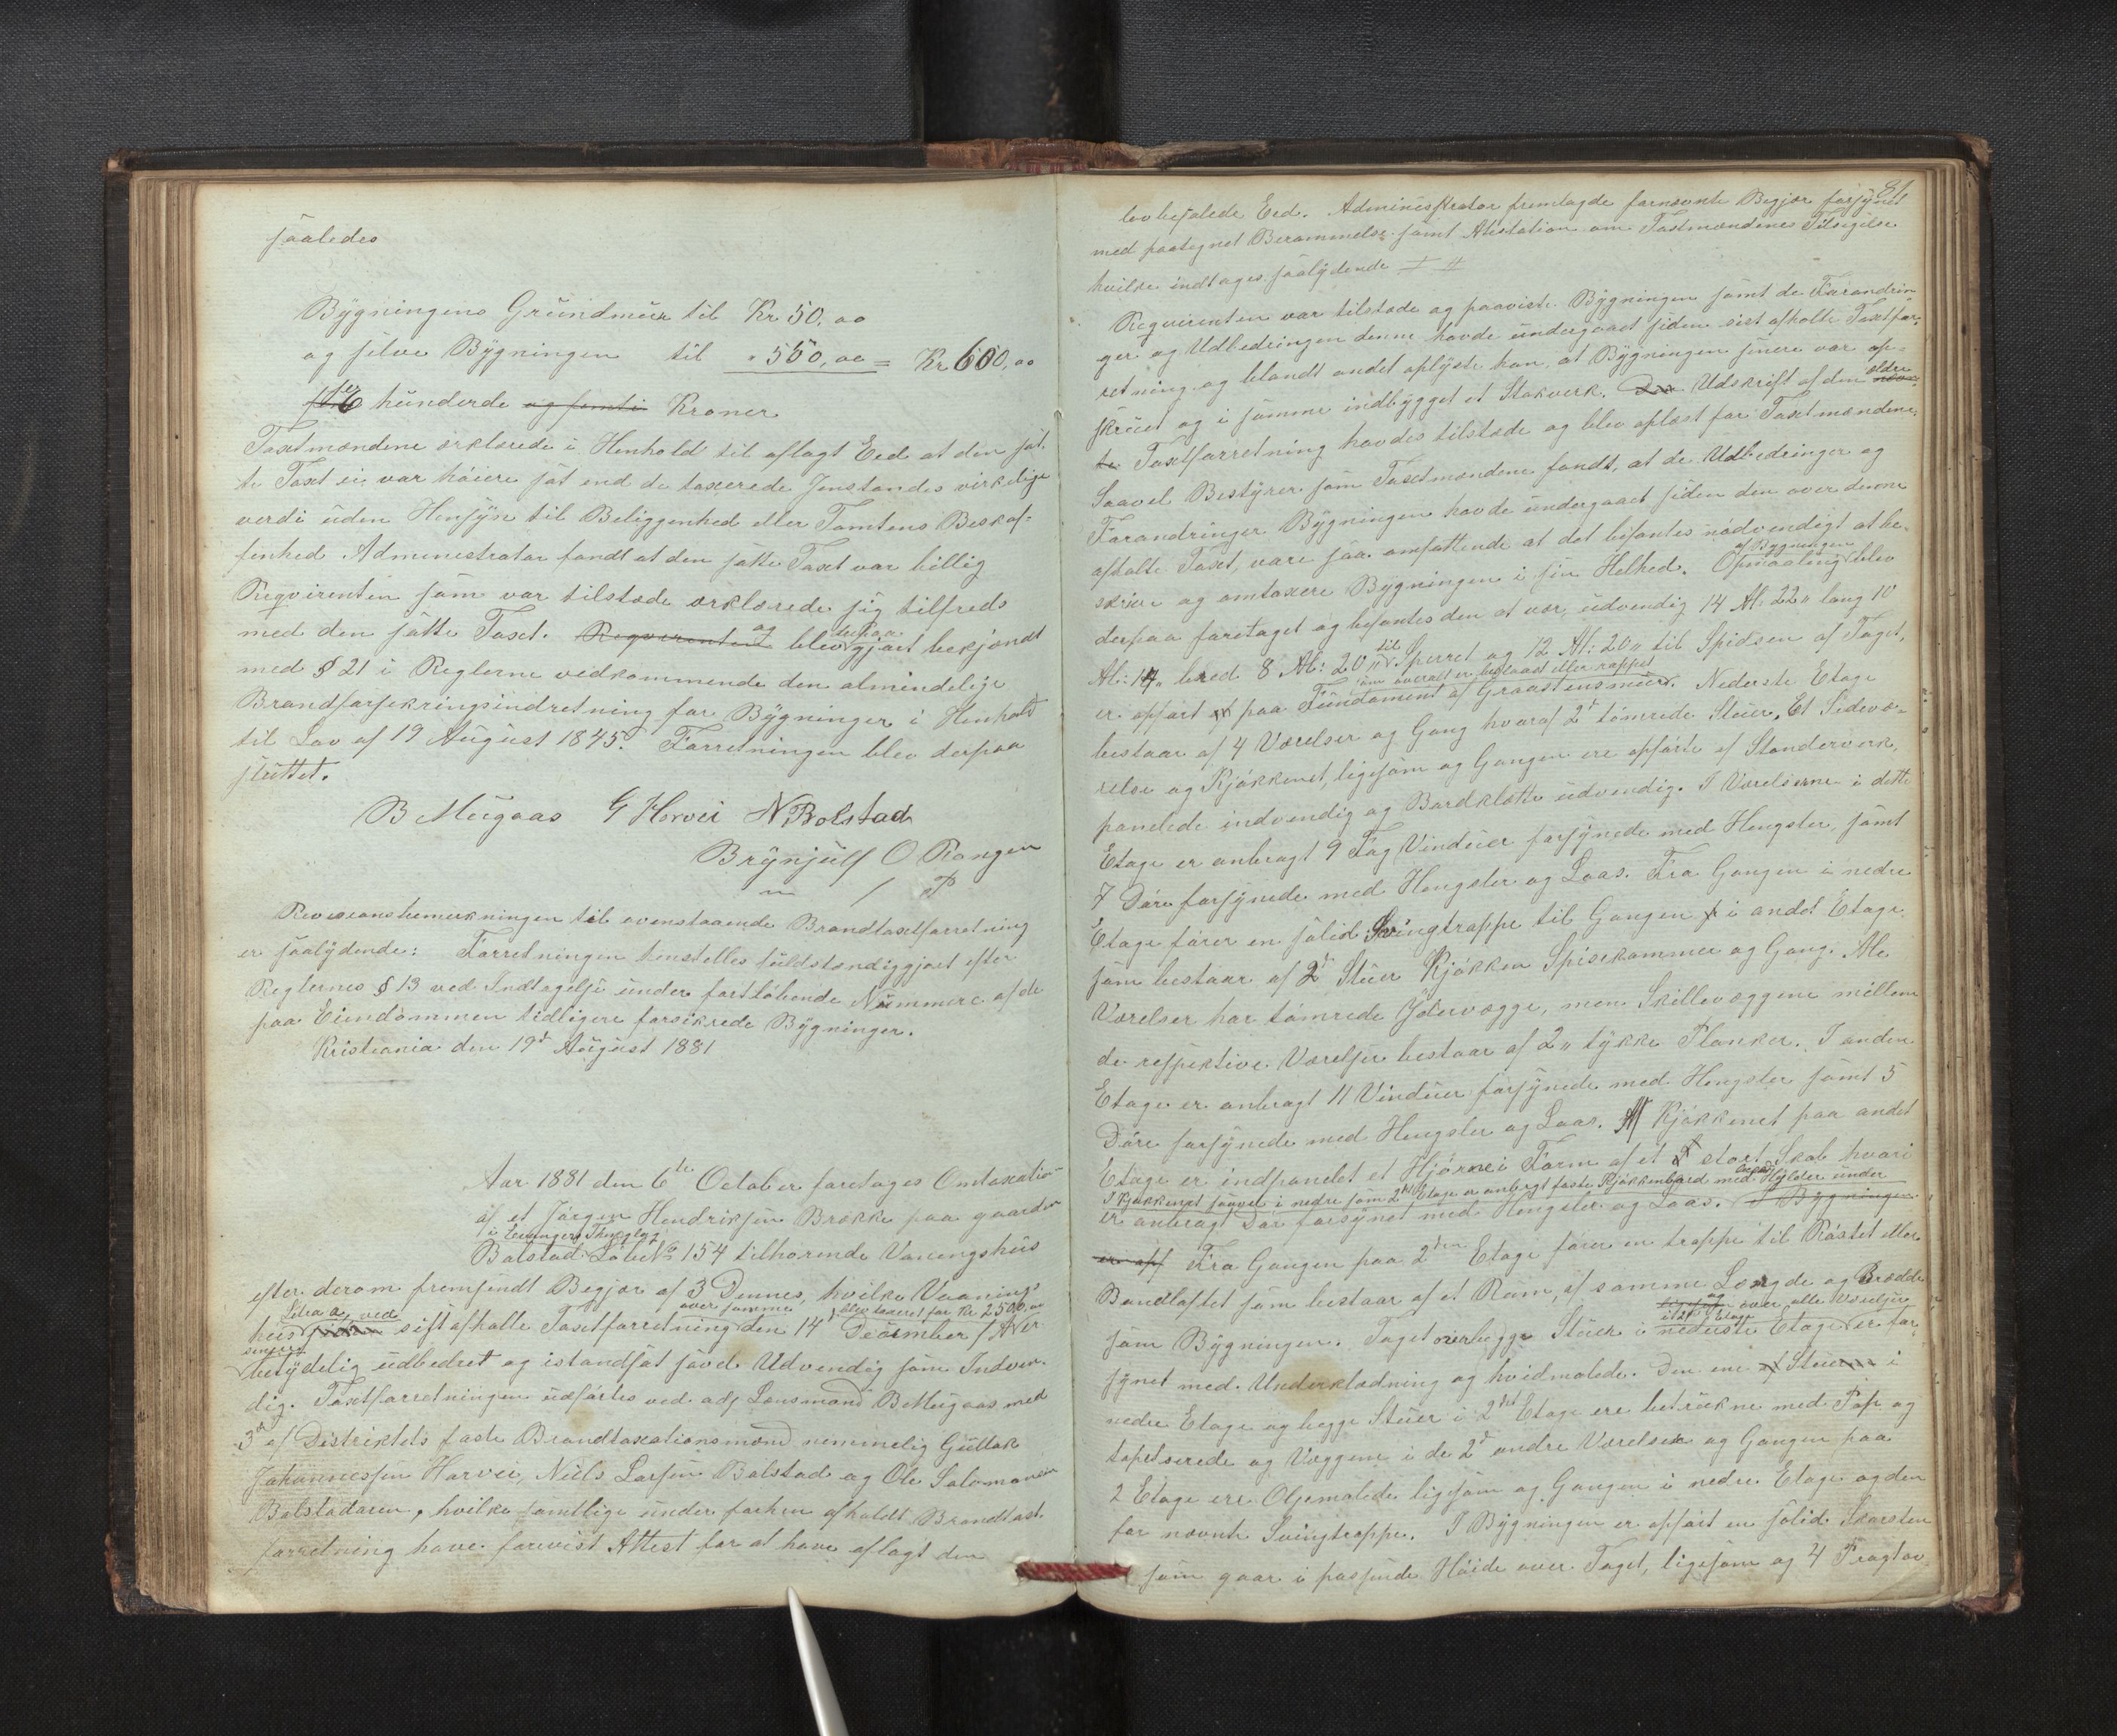 saaledes
Bygningens Grundmur til Kr 50,00
og selve Bygningen til " 550,00 = Kr 600,00
sex hunderde og femti Kroner
Taxtmændene erklærede i Henhold til aflagt Eed at den sat
te Taxt ei var høiere sat end de taxerede Jenstandes virkelige
verdi uden Hensyn til Beliggenhed eller Tomtens Beskaf-
fenhed Administrator fandt at den satte Taxt var billig
Reqvirenten som var tilstede erklærede sig tilfreds
med den satte Taxt. Reqvirenten og blev desuden gjort bekjendt
med § 21 i Reglerne vedkommende den almindelige
Brandforsikringsindretning for Bygninger i Henhold
til Lov af 19 August 1845. Forretningen blev derpaa
sluttet.
B Mugaas G Horvei N Bolstad
Brynjulf O Rongen
m / P
Revisionsbemerkningen til ovenstaaende Brandtaxtforretning
er saalydende: Forretningen henstilles fuldstændiggjort efter
Reglernes § 13 ved Indtagelse under fortløbende Nummere af de
paa Eiendommen tidligere forsikrede Bygninger.
Kristiania den 19d August 1881
Aar 1881 den 6te October foretages Omtaxation
af et Jørgen Hendriksen Brække paa gaarden
i Evangers Thinglag
Bolstad Løbe No 154 tilhørende Vaaningshus
efter derom fremsendt Begjær af 3 Dennes, hvilke Vaanings
Litra a, ved over samme blev taxeret for Kr 2500,00
hus siden sist afholte Taxtforretning den 14d December f A er
senere
betydelig udbedret og istandsat saavel Udvendig som Indven-
dig. Taxtforretningen udførtes ved adj Lensmand B Mugaas med
3d af Distriktets faste Brandtaxationsmænd nemmelig Gullak
Johannessen Horvei, Niels Larsen Bolstad og Ole Salomonsen
Bolstadøren, hvilke samtlige under forhen afholdt Brandtaxt
forretning have forevist Attest for at have aflagt den
81.
lovbefalede Eed. Administrator fremlagde fornævnte Begjær forsynet
med paategnet Berammelse samt Atestation om Taxtmændenes Tilsigelse
hvilke indtages saalydende
Reqvirenten var tilstede og paaviste Bygningen samt de Forandrin
ger og Udbedringen denne havde undergaaet siden sist afholte Taxtfor-
retning og blandt andet oplyste han at Bygningen senere var op-
skruet og i samme indbygget et Stokverk. Den Udskrift af den ældre
te Taxtforretning havdes tilstede og blev oplæst for Taxtmændene.
Saavel Bestyrer som Taxtmændene fandt, at de Udbedringer og
Forandringer Bygningen havde undergaaet siden den over denne
afholte Taxt, vare saa omfattende at det befantes nødvendigt at be-
skrive og omtaxere Bygningen i sin Helhed. Opmaaling af Bygningen blev
derpaa foretaget og befantes den at vær udvendig 14 Al: 22" lang 10
Al: 14" bred 8 Al: 20" til Sperret og 12 Al: 20" til Spidsen af Taget,
som overalt er beslaaet eller rappet
er opført paa Fundament af Graastensmur. Nederste Etage
bestaar af 4 Værelser og Gang hvoraf 2d tømrede Stuer, Et Sidevæ-
relse og Kjøkkenet, ligesom og Gangen ere opførte af Standerverk,
panelede indvendig og Bordklætte udvendig. I Værelserne i dette
Etage er anbragt 9 Fag Vinduer forsynede med Hengsler, samt
7 Døre forsynede med Hengsler og Laas. Fra Gangen i nedre
Etage fører en solid Svingtrappe til Gangen i andet Etage
som bestaar af 2d Stuer Kjøkken Spisekammer og Gang. Ale
Værelser har tømrede Ydervægge, men Skillevæggene mellem
de respektive Værelser bestaar af 2" tykke Planker. I anden
Etage er anbragt 11 Vinduer forsynede med Hengsler samt 5
Døre forsynede med Hengsler og Laas. Af Kjøkkenet paa andet
Etage er indpanelet et Hjørne i Form af et stort Skab hvori
I Kjøkkenet saavel i nedre som 2det Etage er anbragt faste Kjøkkenbord med Hylder under
er anbragt Dør forsynet med Hengsler og Laas. I Bygningen
er opf Fra Gangen paa 2den Etage fører en trappe til Røstet eller
Bandloftet som bestaar af et Rum, af samme Længde og Bredde
som Bygningen. Taget over begge Stuer i nederste Etage og over alle Værelser i 2d Etage er for-
synet med Underklædning og hvidmalede. Den ene af Stuerne i
nedre Etage og begge Stuer i 2det Etage ere betrukne med Pap og
tapetserede og Væggene i de 2d andre Værelser og Gangen paa
2 Etage ere Oljemalede ligesom og Gangen i nedre Etage og den
for nævnte Svingtrappe. I Bygningen er opført en solid Skorsten
som gaar i passende Høide over Taget, ligesom og 4 Fragtov